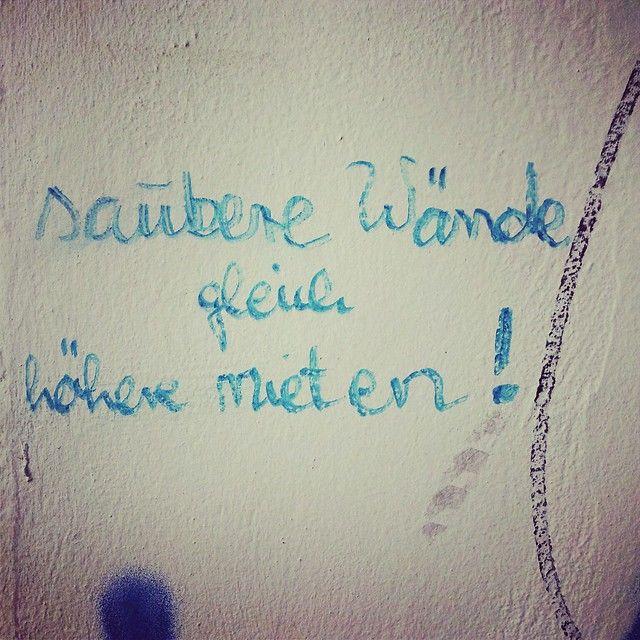 saubere Wände
gleich
höhere mieten!